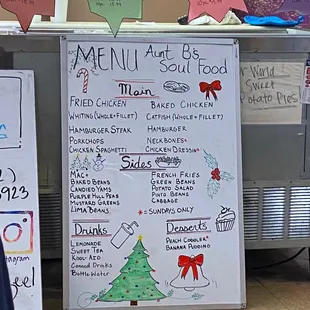 MENU Aunt B's
Soul Food
Main
Fried Chicken
Whiting (Whole+Fillet)
Hamburger Steak
Porkchops
Chicken Spaghetti
Baked Chicken
Catfish (Whole+Fillet)
Hamburger
Neckbones*
Chicken Dressing*
Sides
Mac+
Baked Beans
Candied Yams
Purple Hull Peas
Mustard Greens
Lima Beans
French Fries
Green Beans
Potato Salad
Pinto Beans
Cabbage
*=Sundays Only
Drinks
Lemonade
Sweet Tea
Kool-Aid
Canned Drinks
Bottle Water
Desserts
Peach Cobbler*
Banana Pudding
World
Sweet
Potato Pies
3923